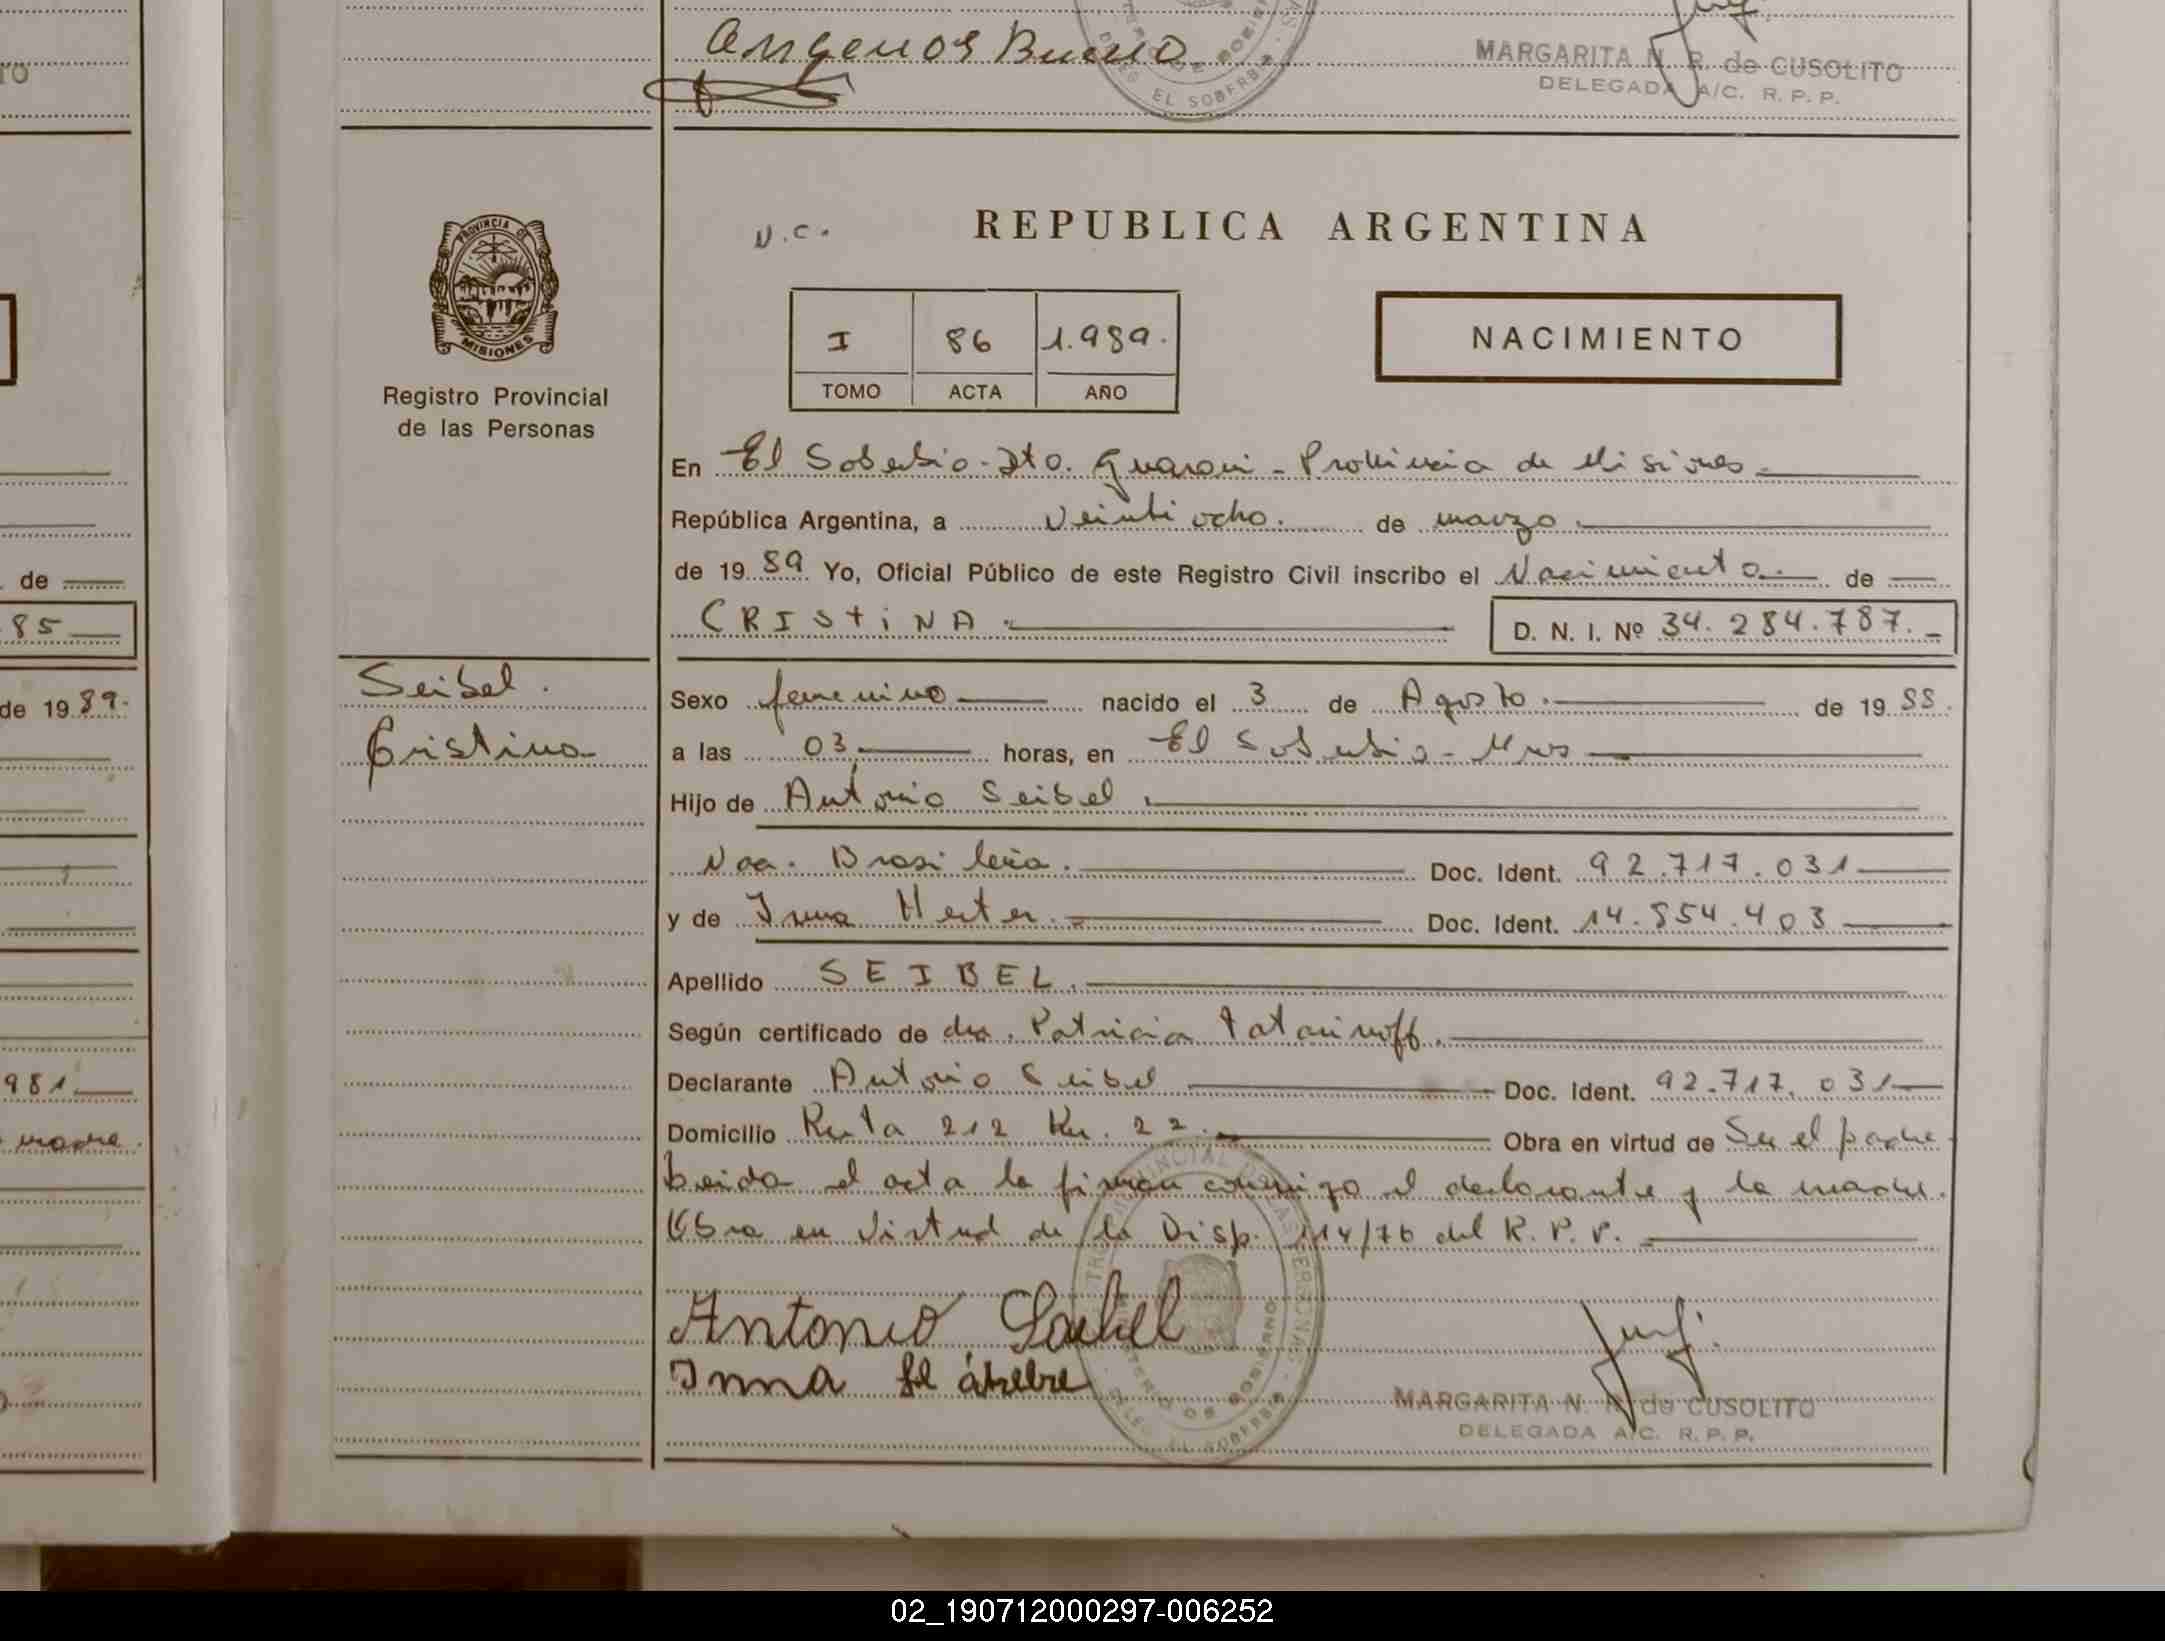 Angenos Bueno
MARGARITA N. R. de CUSOLITO
DELEGADA A/C. R. P. P.
EL SOBERBIO
TO
de
85
de 1989.
981
madre.
PROVINCIA DE
MISIONES
Registro Provincial
de las Personas
Seibel.
Cristina
N.C.
REPUBLICA ARGENTINA
I 86 1.989.
TOMO ACTA AÑO
NACIMIENTO
En El Soberbio - Dto. Guarani - Provincia de Misiones
República Argentina, a veintiocho. de marzo
de 1989. Yo, Oficial Público de este Registro Civil inscribo el Nacimiento de
CRIStiNA D. N. I. Nº 34.284.787.-
Sexo femenino nacido el 3 de Agosto. de 1988.
a las 03 horas, en El Soberbio - Mnes
Hijo de Antonio Seibel
Nac. Brasilera. Doc. Ident. 92.717.031
y de Irma Herter. Doc. Ident. 14.854.403
Apellido SEIBEL.
Según certificado de dra. Patricia Tatarinoff.
Declarante Antonio Seibel Doc. Ident. 92.717.031
Domicilio Ruta 212 Km. 22. Obra en virtud de Ser el padre.
Leida el acta la firman conmigo el declarante y la madre.
Obra en virtud de la Disp. 114/76 del R. P. P.
Antonio Saibel
Irma
MARGARITA N. R. de CUSOLITO
DELEGADA A/C. R. P. P.
EL SOBERBIO
02_190712000297-006252